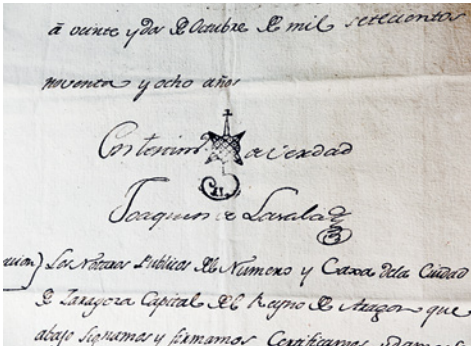 a veinte y dos de Octubre de mil setecientos
noventa y ocho años
En testimo. de verdad
Joaquin de
Los Notarios Publicos del Numero y Caxa dela Ciudad
de Zaragoza Capital del Reyno de Aragon que
abajo signamos y firmamos Certificamos